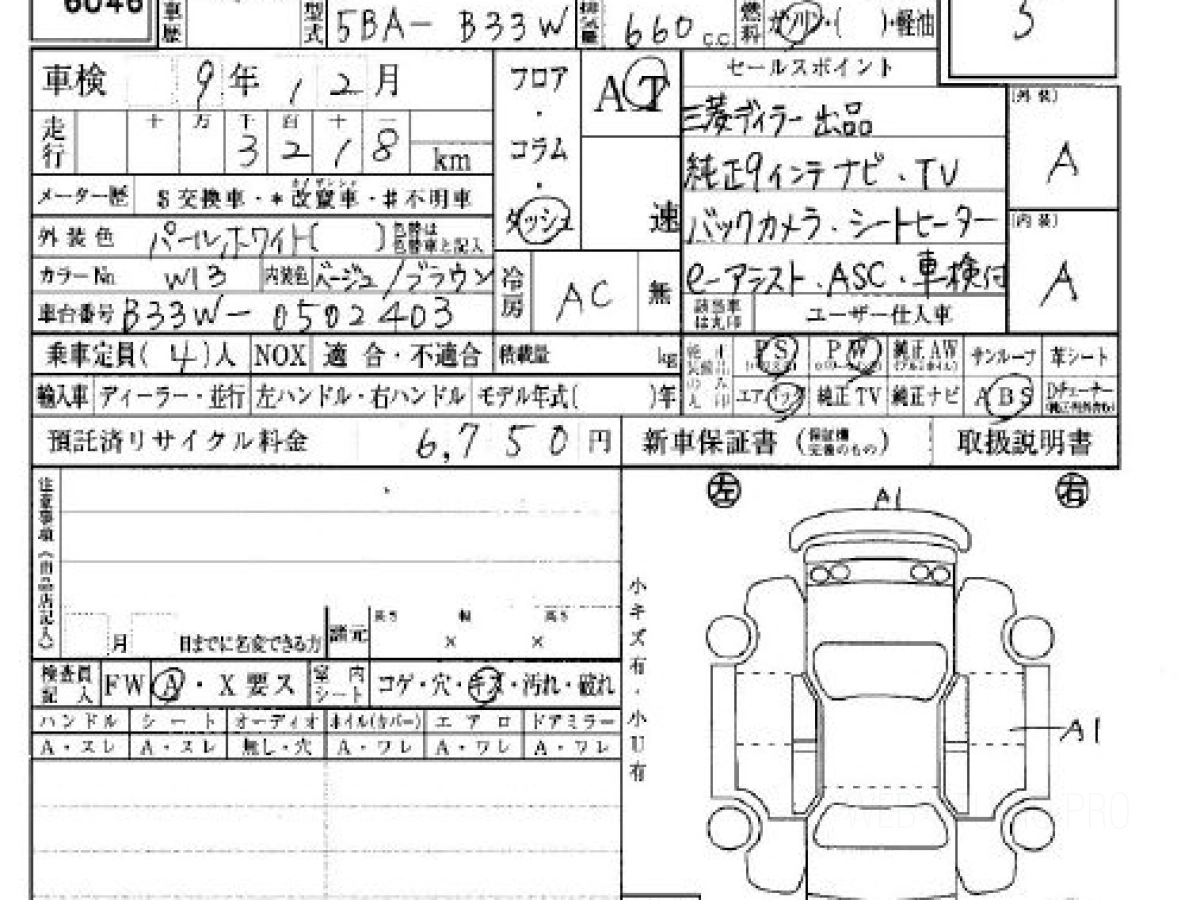 6046
車歴
型式 5BA- B33W 排気量 660 c.c. 燃料 ガソリン・( )・軽油 S
車検 9年12月
フロア・コラム・ダッシュ
AT
速
セールスポイント
走行 十 万 千 百 十 一
3218 km
三菱ディラー出品
純正9インチナビ・TV
バックカメラ・シートヒーター
e-アシスト・ASC・車検付
(外装)
A
(内装)
A
メーター歴 $交換車・*改竄車・#不明車
外装色 パールホワイト( ) 色替は色替車と記入
カラーNo. W13 内装色 ベージュ/ブラウン
冷房 AC 無
車台番号 B33W-0502403
該当車は丸印 ユーザー仕入車
乗車定員(4)人 NOX 適合・不適合 積載量 kg
PS PW 純正AW サンルーフ 革シート
輸入車 ディーラー・並行 左ハンドル・右ハンドル モデル年式( )年
エアバック 純正TV 純正ナビ ABS Dチューナー
預託済リサイクル料金 6,750円 新車保証書 (保証機完備のもの) 取扱説明書
注意事項(出品店記入)
左 A1 右
月 日までに名変できる方 諸元 長さ 幅 高さ
× ×
小キズ有・小U有
検査員記入 FW A・X要ス 室内シート コゲ・穴・キズ・汚れ・破れ
ハンドル シート オーディオ ホイル(カバー) エアロ ドアミラー
A・スレ A・スレ 無し・穴 A・ワレ A・ワレ A・ワレ
A1